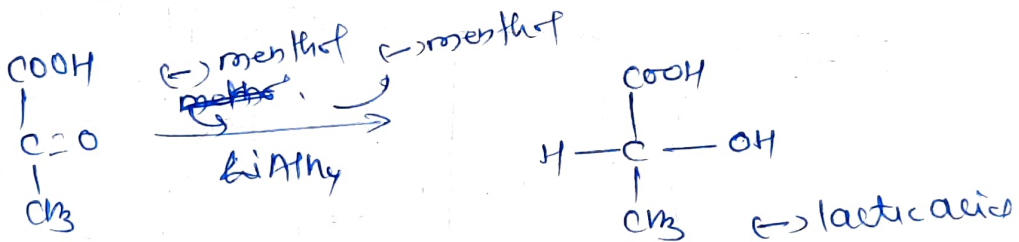 COOH
C=O
CH3
(-) menthol
(-) menthol
LiAlH4
COOH
H-C-OH
CH3
(-) lactic acid